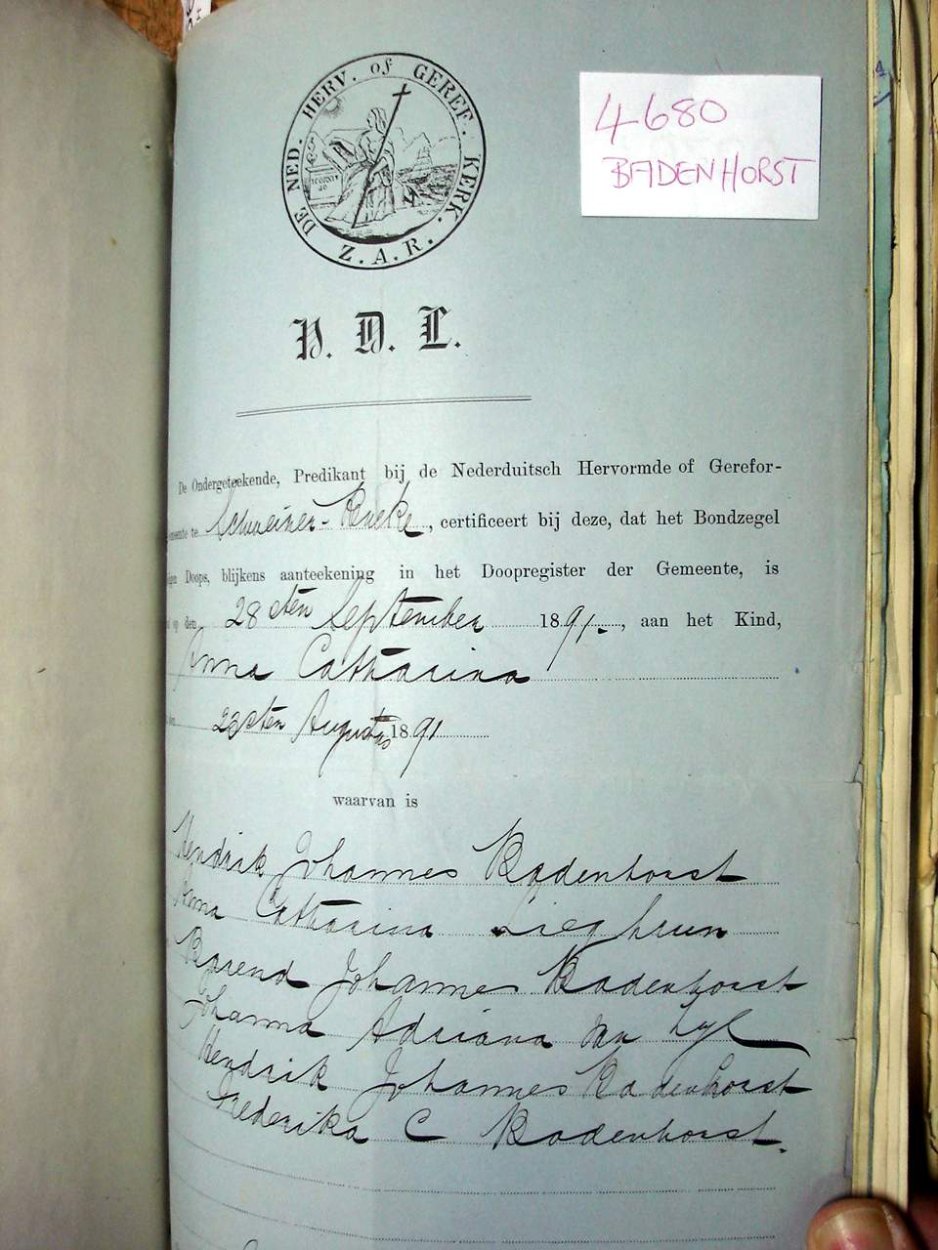 DE NED. HERV. of GEREF. KERK. Z.A.R.
4680
BADENHORST
V. D. L.
De Ondergeteekende, Predikant bij de Nederduitsch Hervormde of Gerefor-
te Schweizer-Reneke, certificeert bij deze, dat het Bondzegel
Doops, blijkens aanteekening in het Doopregister der Gemeente, is
op den 28sten September 1891., aan het Kind,
Anna Catharina
sten Augustus 1891
waarvan is
Hendrik Johannes Badenhorst
Anna Catharina
Barend Johannes Badenhorst
Johanna Adriana van Zyl
Hendrik Johannes Badenhorst
Frederika C Badenhorst.